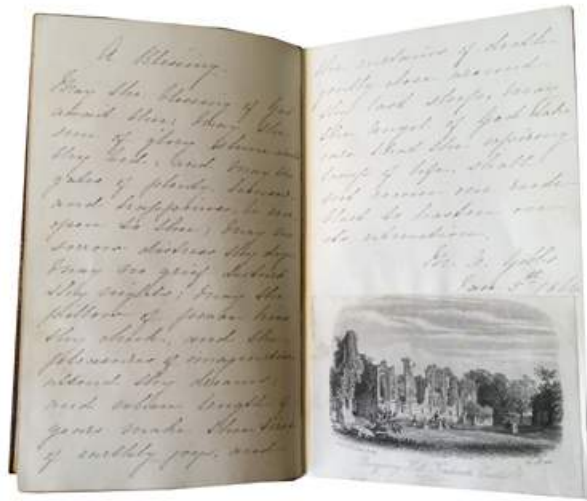 A Blessing.
May the blessing of God
await thee; may the
sun of glory shine
thy bed, and may the
gates of plenty, honour
and happiness be ever
open to thee; May no
sorrow distress thy days
may no grief disturb
thy nights; may the
pillow of peace kiss
thy cheek, and the
pleasures of imagination
attend thy dreams;
and when length of
years make thee tired
of earthly joys, and
the curtains of death
gently close around
thy last sleep, may
the angel of God take
care that the expiring
lamp of life, shall
not receive one rude
blast to hasten on
its extinction.
Gibbs
Jan 5th